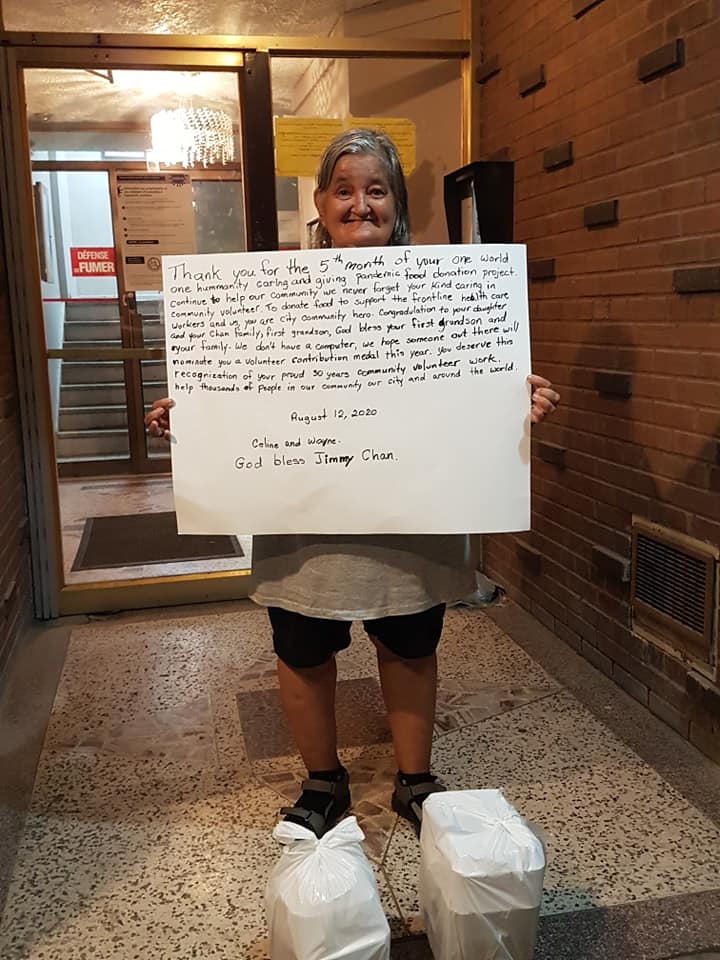 DÉFENSE
DE FUMER
Thank you for the 5th month of your one world
one hummanity caring and giving pandemic food donation project.
Continue to help our community we never forget your kind caring in
community volunteer. To donate food to support the frontline health care
workers and us, you are city community hero. Congradulation to your daughter
and your Chan family, first grandson, God bless your first grandson and
your family. We don't have a computer, we hope someone out there will
nominate you a volunteer contribution medal this year. you deserve this
recognization of your proud 30 years community volunteer work.
help thousands of people in our community our city and around the world.
August 12, 2020
Celine and Wayne.
God bless Jimmy Chan.